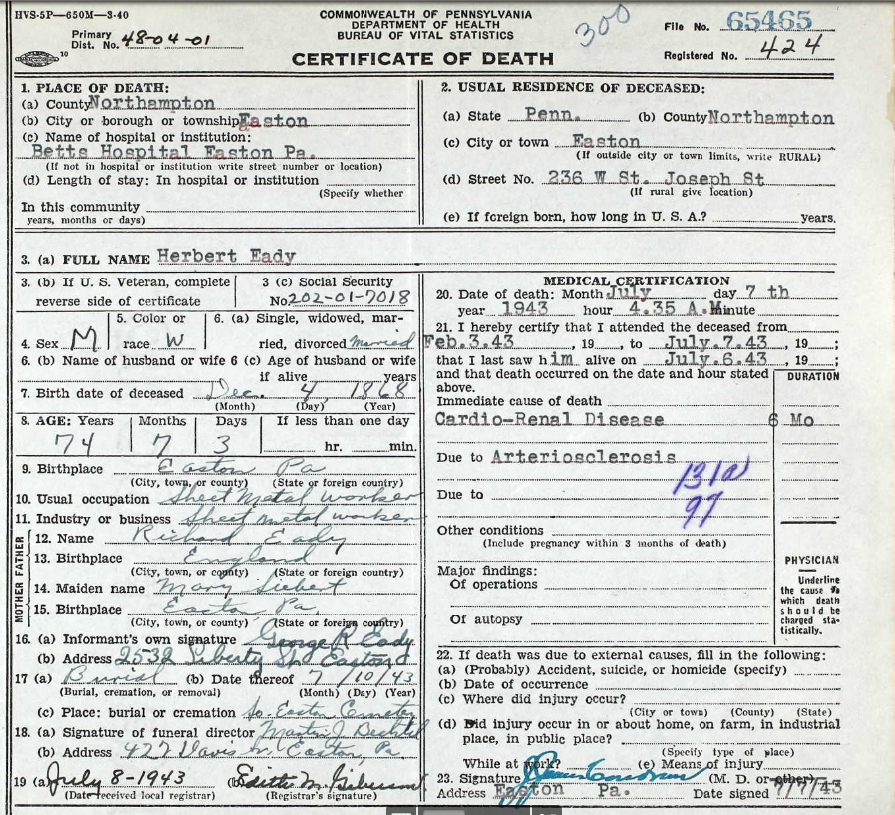 HVS-5P—650M—3-40
COMMONWEALTH OF PENNSYLVANIA
DEPARTMENT OF HEALTH
BUREAU OF VITAL STATISTICS
CERTIFICATE OF DEATH
Primary Dist. No. 48-04-01
10
300
File No. 65465
Registered No. 424
1. PLACE OF DEATH:
(a) County Northampton
(b) City or borough or township Easton
(c) Name of hospital or institution:
Betts Hospital Easton Pa.
(If not in hospital or institution write street number or location)
(d) Length of stay: In hospital or institution
(Specify whether
In this community
years, months or days)
2. USUAL RESIDENCE OF DECEASED:
(a) State Penn. (b) County Northampton
(c) City or town Easton
(If outside city or town limits, write RURAL)
(d) Street No. 236 W St. Joseph St
(If rural give location)
(e) If foreign born, how long in U. S. A.? years.
3. (a) FULL NAME Herbert Eady
3. (b) If U. S. Veteran, complete
reverse side of certificate
3 (c) Social Security
No 202-01-7018
4. Sex M
5. Color or
race W
6. (a) Single, widowed, mar-
ried, divorced Married
6. (b) Name of husband or wife 6 (c) Age of husband or wife
if alive years
7. Birth date of deceased Dec. 4, 1868
(Month) (Day) (Year)
8. AGE: Years Months Days If less than one day
74 7 3 hr. min.
9. Birthplace Easton Pa
(City, town, or county) (State or foreign country)
10. Usual occupation Sheet Metal worker
11. Industry or business Sheet metal worker
FATHER
12. Name Richard Eady
13. Birthplace England
(City, town, or county) (State or foreign country)
MOTHER
14. Maiden name Mary Siebert
15. Birthplace Easton Pa.
(City, town, or county) (State or foreign country)
16. (a) Informant's own signature George R Eady
(b) Address 2532 Liberty St Easton
17 (a) Burial (b) Date thereof 7/10/43
(Burial, cremation, or removal) (Month) (Day) (Year)
(c) Place: burial or cremation So. Easton Cemetery
18. (a) Signature of funeral director Martin J
(b) Address 427 Davis St. Easton, Pa.
19 (a) July 8-1943 (b) Edith M.
(Date received local registrar) (Registrar's signature)
MEDICAL CERTIFICATION
20. Date of death: Month July day 7 th
year 1943 hour 4.35 A.M. minute
21. I hereby certify that I attended the deceased from
Feb.3.43, 19 , to July.7.43, 19 ;
that I last saw him alive on July.6.43, 19 ;
and that death occurred on the date and hour stated
above.
DURATION
Immediate cause of death
Cardio-Renal Disease 6 Mo
Due to Arteriosclerosis
131a
Due to
97
Other conditions
(Include pregnancy within 3 months of death)
Major findings:
Of operations
Of autopsy
PHYSICIAN
Underline
the cause to
which death
should be
charged sta-
tistically.
22. If death was due to external causes, fill in the following:
(a) (Probably) Accident, suicide, or homicide (specify)
(b) Date of occurrence
(c) Where did injury occur?
(City or town) (County) (State)
(d) Did injury occur in or about home, on farm, in industrial
place, in public place?
(Specify type of place)
While at work? (e) Means of injury
23. Signature (M. D. or other)
Address Easton Pa. Date signed 7/7/43